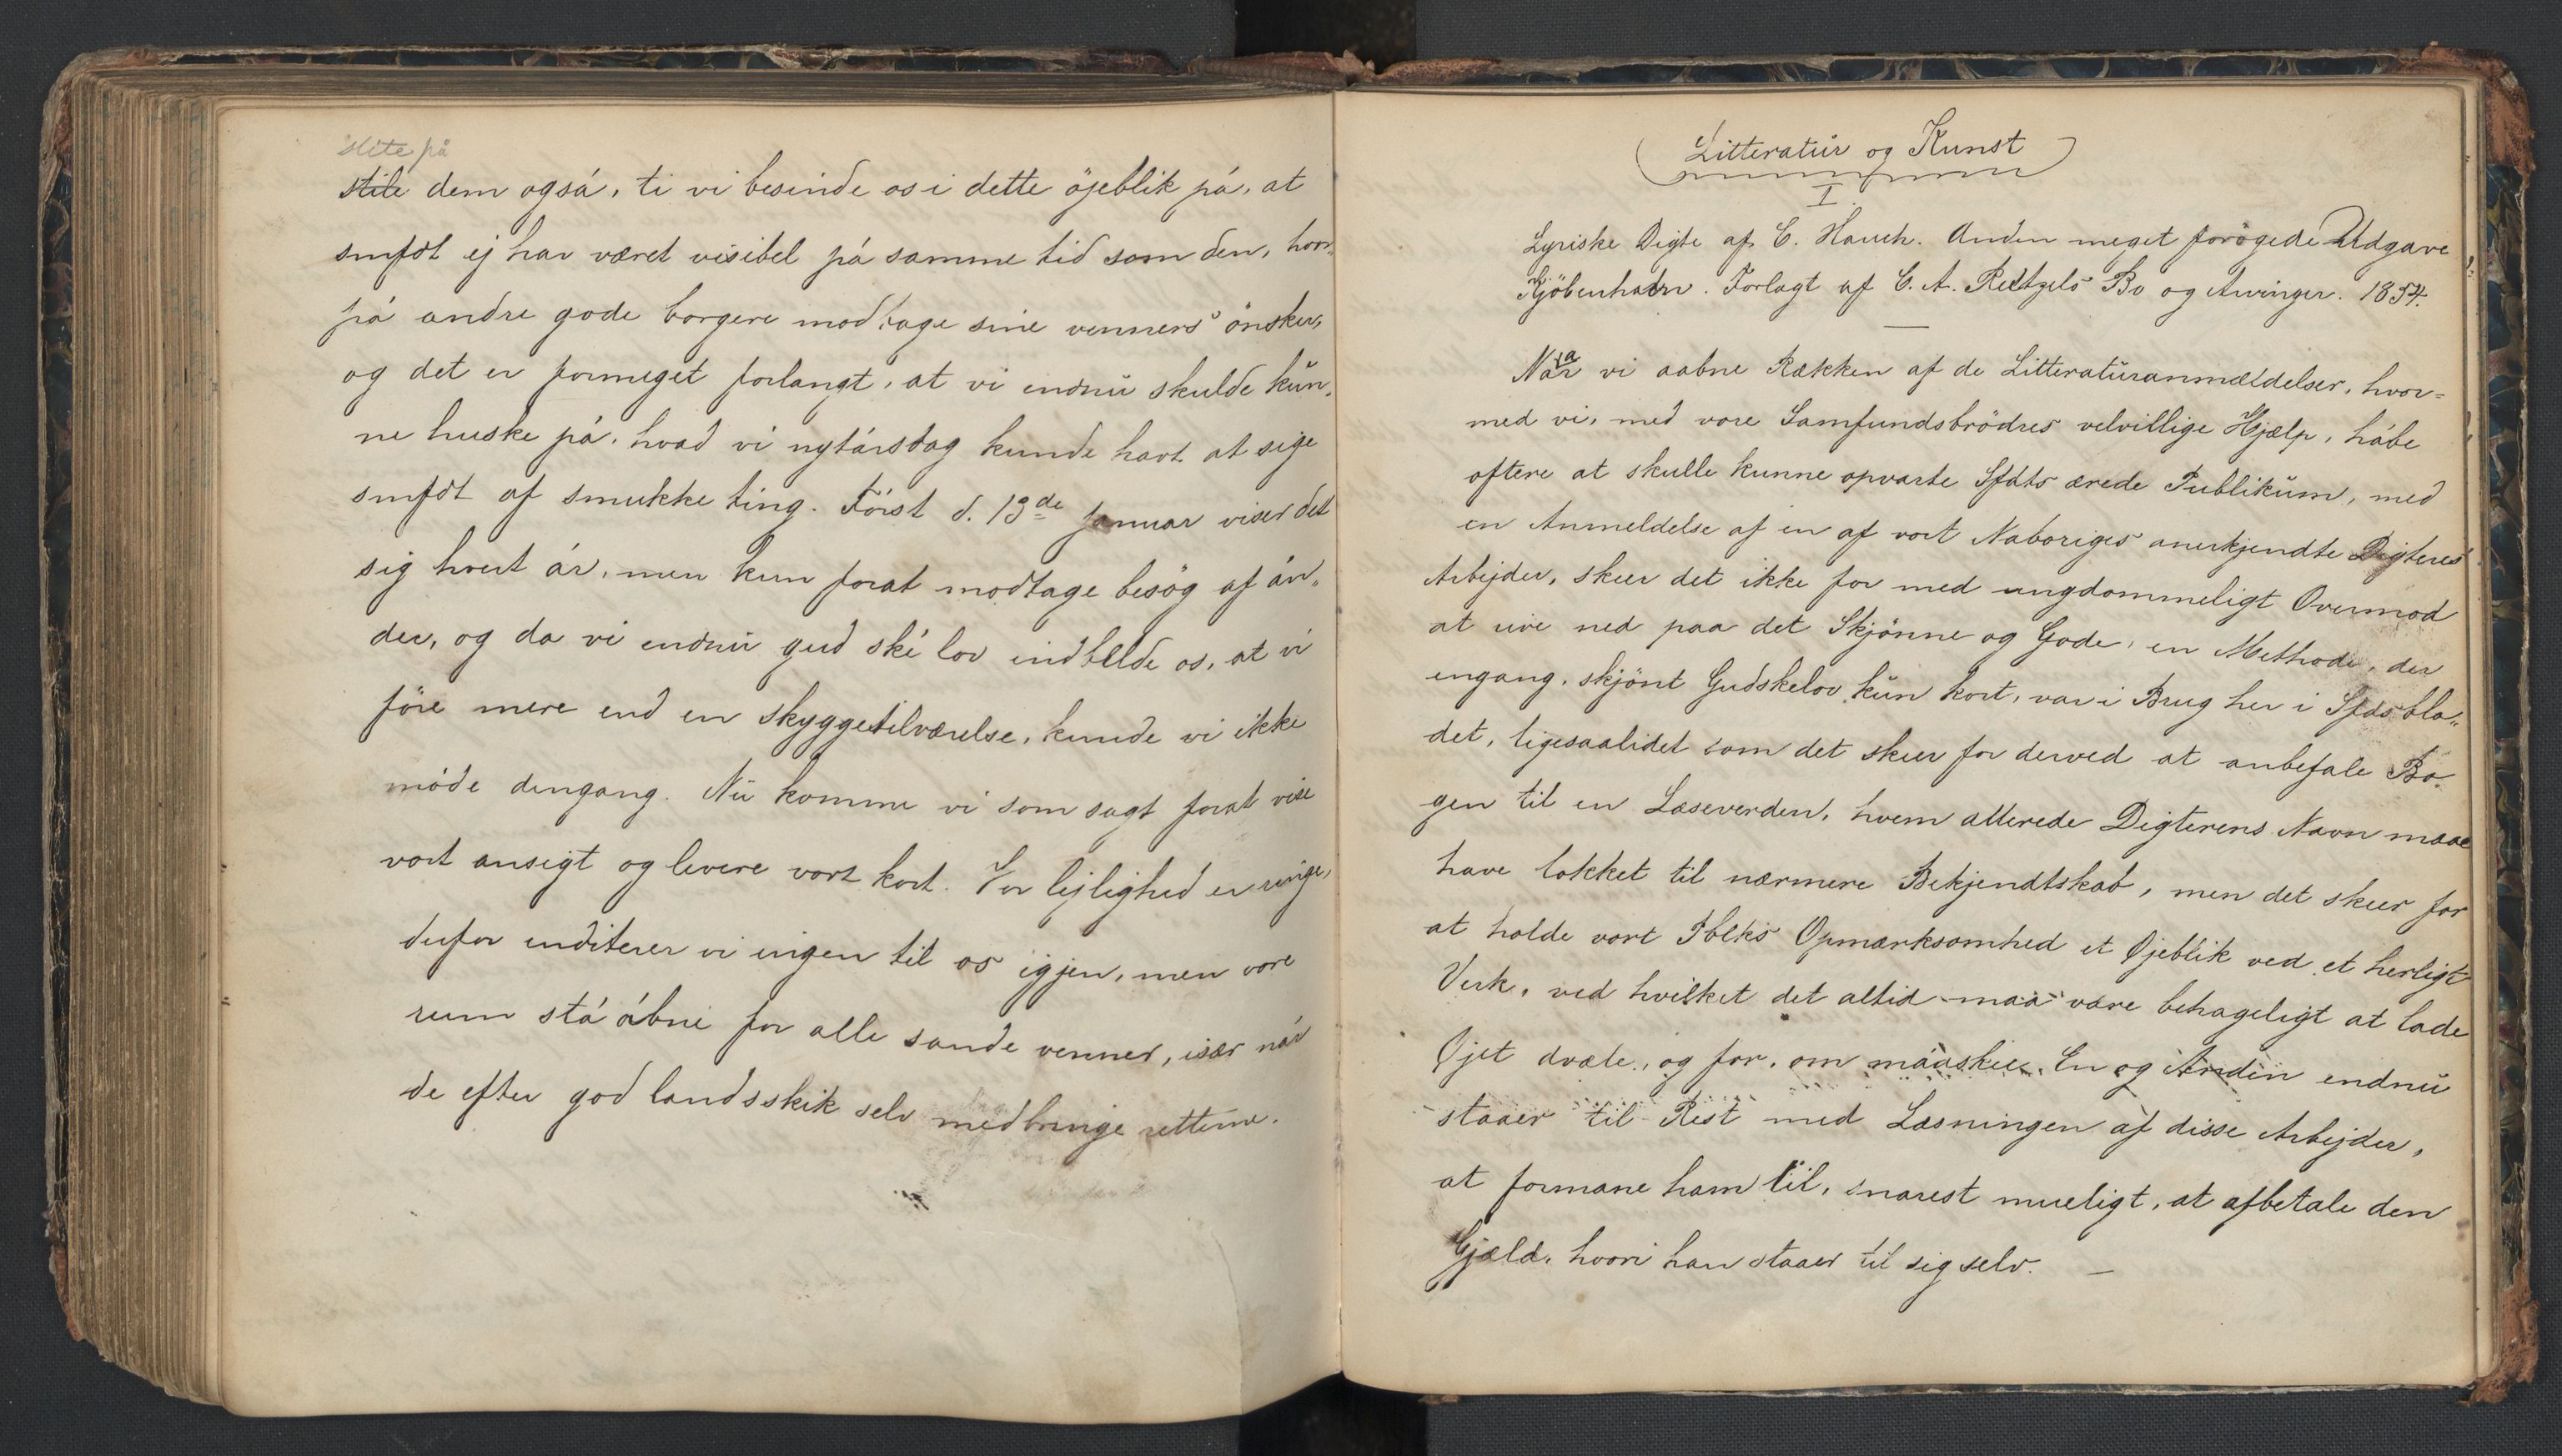 slite på
stile dem også, ti vi besinde os i dette öjeblik på, at
smfdt ej har været visibel på samme tid som den, hvor-
på andre gode borgere modtage sine venners önsker,
og det er formeget forlangt, at vi endnu skulde kun-
ne huske på, hvad vi nytårsdag kunde havt at sige
smfdt af smukke ting. Först d. 13de januar viser det
sig hvert år, men kun forat modtage besög af ån-
der, og da vi endnu gud ské lov indbilde os, at vi
före mere end en skyggetilværelse, kunde vi ikke
möde dengang. Nu komme vi som sagt forat vise
vort ansigt og levere vort kort. Vor lejlighed er ringe,
derfor inditerer vi ingen til os igjen, men vore
rum stå åbne for alle sande venner, især når
de efter god landsskik selv medbringe retterne.
Litteratur og Kunst
I.
Lyriske Digte af C. Hauch. Anden meget forögede Udgave
Kjöbenhavn. Forlagt af C. A. Reitzels Bo og Arvinger. 1854.
Naar vi aabne Rækken af de Litteraturanmældelser, hvor-
med vi, med vore Samfundsbrödres velvillige Hjælp, håbe
oftere at skulle kunne opvarte Sfdts ærede Publikum, med
en Anmeldelse af en af vort Naboriges anerkjendte Digteres
Arbejder, skeer det ikke for med ungdommeligt Overmod
at rive ned paa det Skjönne og Gode, en Methode, der
engang, skjönt Gudskelov kun kort, var i Brug her i Sfdsbla-
det, ligesaalidet som det skeer for derved at anbefale Bo-
gen til en Læseverden, hvem allerede Digterens Navn maae
have lokket til nærmere Bekjendtskab, men det skeer for
at holde vort Folks Opmærksomhed et Øjeblik ved et herligt
Verk, ved hvilket det altid maa være behageligt at lade
Øjet dvæle, og for, om maaskee En og Anden endnu
staaer til Rest med Læsningen af disse Arbejder,
at formane ham til, snarest mueligt, at afbetale den
Gjæld, hvori han staaer til sig selv. —